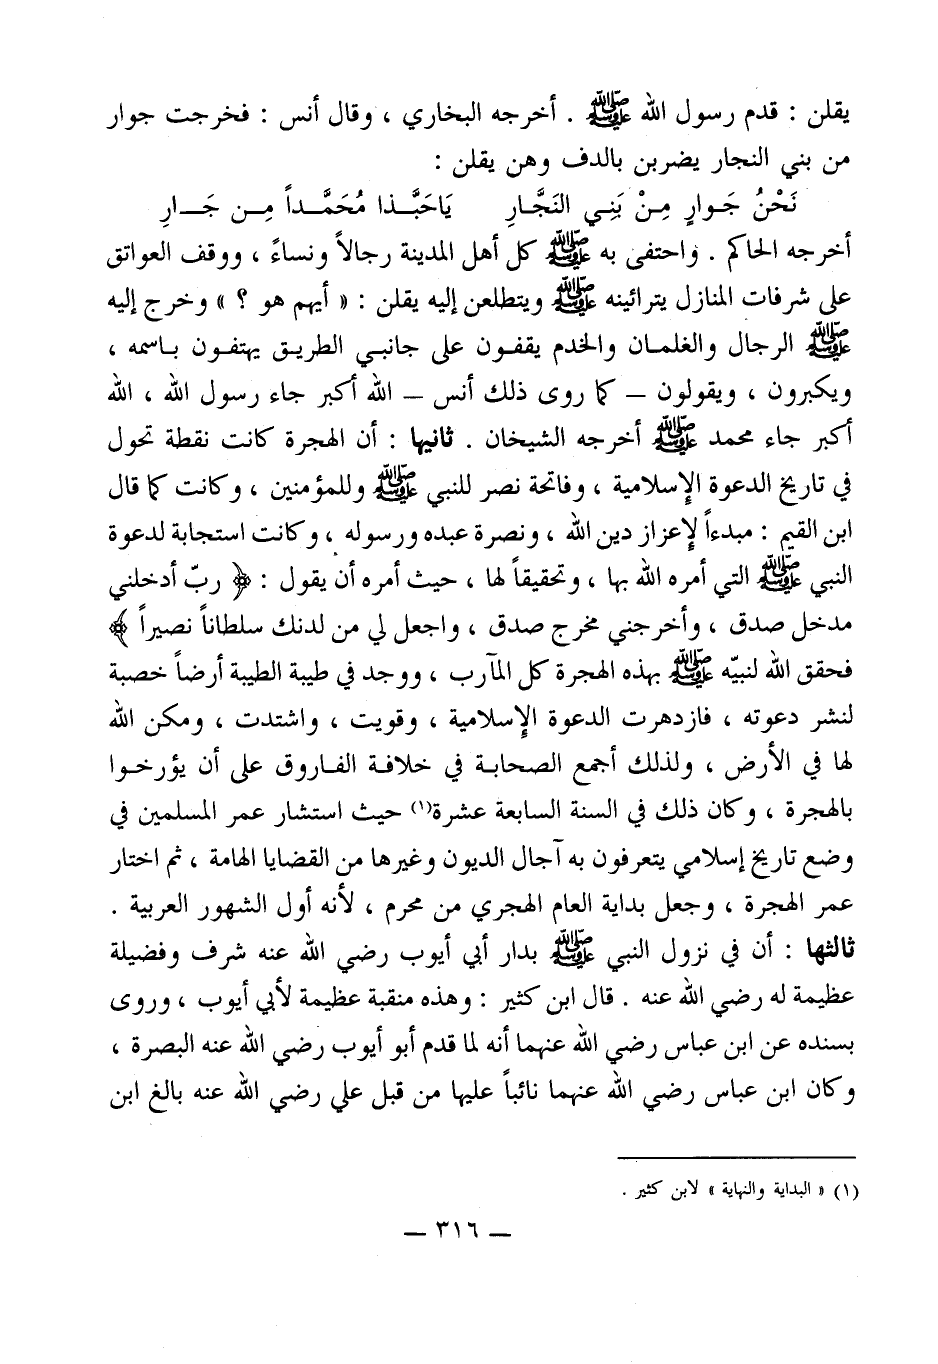 يقلن : قدم رسول الله ﷺ . أخرجه البخاري ، وقال أنس : فخرجت جوار
من بني النجار يضربن بالدف وهن يقلن :
نَحْنُ جَـوارٍ مِـنْ بَنِـي النَجَّـارِ يَاحَبَّــذا مُحَمَّــداً مِــن جَـــارِ
أخرجه الحاكم . واحتفى به ﷺ كل أهل المدينة رجالاً ونساءً ، ووقف العواتق
على شرفات المنازل يترائينه ﷺ ويتطلعن إليه يقلن : « أيهم هو ؟ » وخرج إليه
ﷺ الرجال والغلمان والخدم يقفون على جانبي الطريق يهتفون باسمه ،
ويكبرون ، ويقولون – كما روى ذلك أنس – الله أكبر جاء رسول الله ، الله
أكبر جاء محمد ﷺ أخرجه الشيخان . ثانيها : أن الهجرة كانت نقطة تحول
في تاريخ الدعوة الإسلامية ، وفاتحة نصر للنبي ﷺ وللمؤمنين ، وكانت كما قال
ابن القيم : مبدءاً لإعزاز دين الله ، ونصرة عبده ورسوله ، وكانت استجابة لدعوة
النبي ﷺ التي أمره الله بها ، وتحقيقاً لها ، حيث أمره أن يقول : ﴿ ربّ أدخلني
مدخل صدق ، وأخرجني مخرج صدق ، واجعل لي من لدنك سلطاناً نصيراً ﴾
فحقق الله لنبيّه ﷺ بهذه الهجرة كل المآرب ، ووجد في طيبة الطيبة أرضاً خصبة
لنشر دعوته ، فازدهرت الدعوة الإسلامية ، وقويت ، واشتدت ، ومكن الله
لها في الأرض ، ولذلك أجمع الصحابة في خلافة الفاروق على أن يؤرخوا
بالهجرة ، وكان ذلك في السنة السابعة عشرة(١) حيث استشار عمر المسلمين في
وضع تاريخ إسلامي يتعرفون به آجال الديون وغيرها من القضايا الهامة ، ثم اختار
عمر الهجرة ، وجعل بداية العام الهجري من محرم ، لأنه أول الشهور العربية .
ثالثها : أن في نزول النبي ﷺ بدار أبي أيوب رضي الله عنه شرف وفضيلة
عظيمة له رضي الله عنه . قال ابن كثير : وهذه منقبة عظيمة لأبي أيوب ، وروى
بسنده عن ابن عباس رضي الله عنهما أنه لما قدم أبو أيوب رضي الله عنه البصرة ،
وكان ابن عباس رضي الله عنهما نائباً عليها من قبل علي رضي الله عنه بالغ ابن
(١) « البداية والنهاية » لابن كثير .
– ٣١٦ –